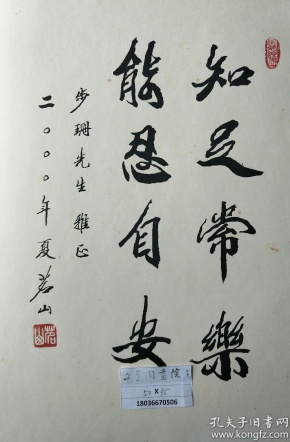 知足常樂
能忍自安
步珊先生 雅正
二〇〇〇年夏 茗山
18036670506
孔夫子旧书网